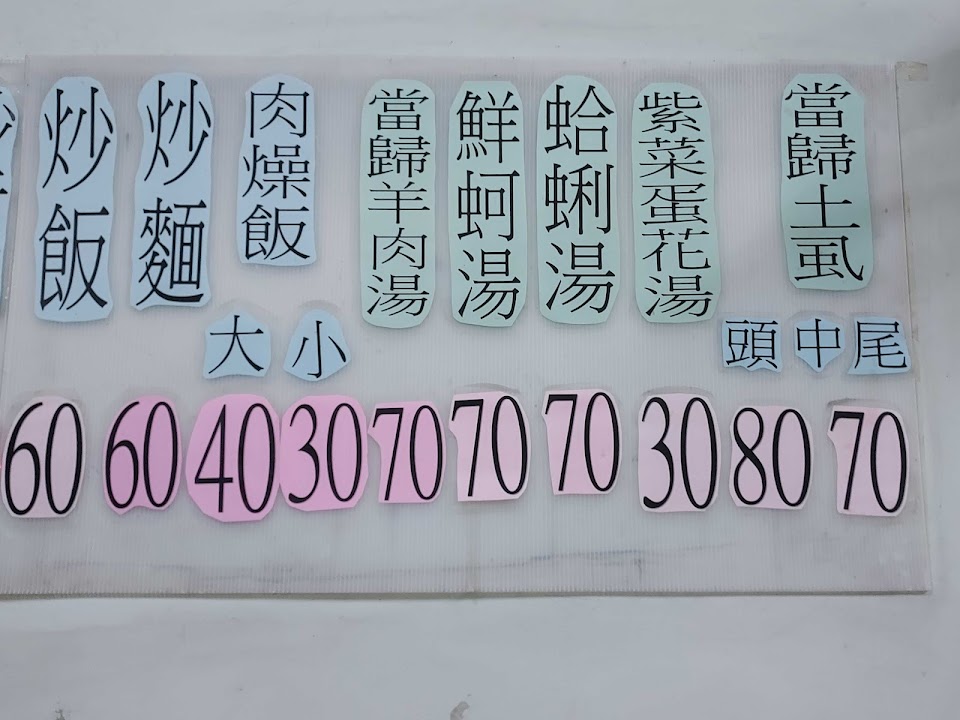 炒飯
炒麵
肉燥飯
當歸羊肉湯
鮮蚵湯
蛤蜊湯
紫菜蛋花湯
當歸土虱
大 小
頭 中 尾
60 60 40 30 70 70 70 30 80 70